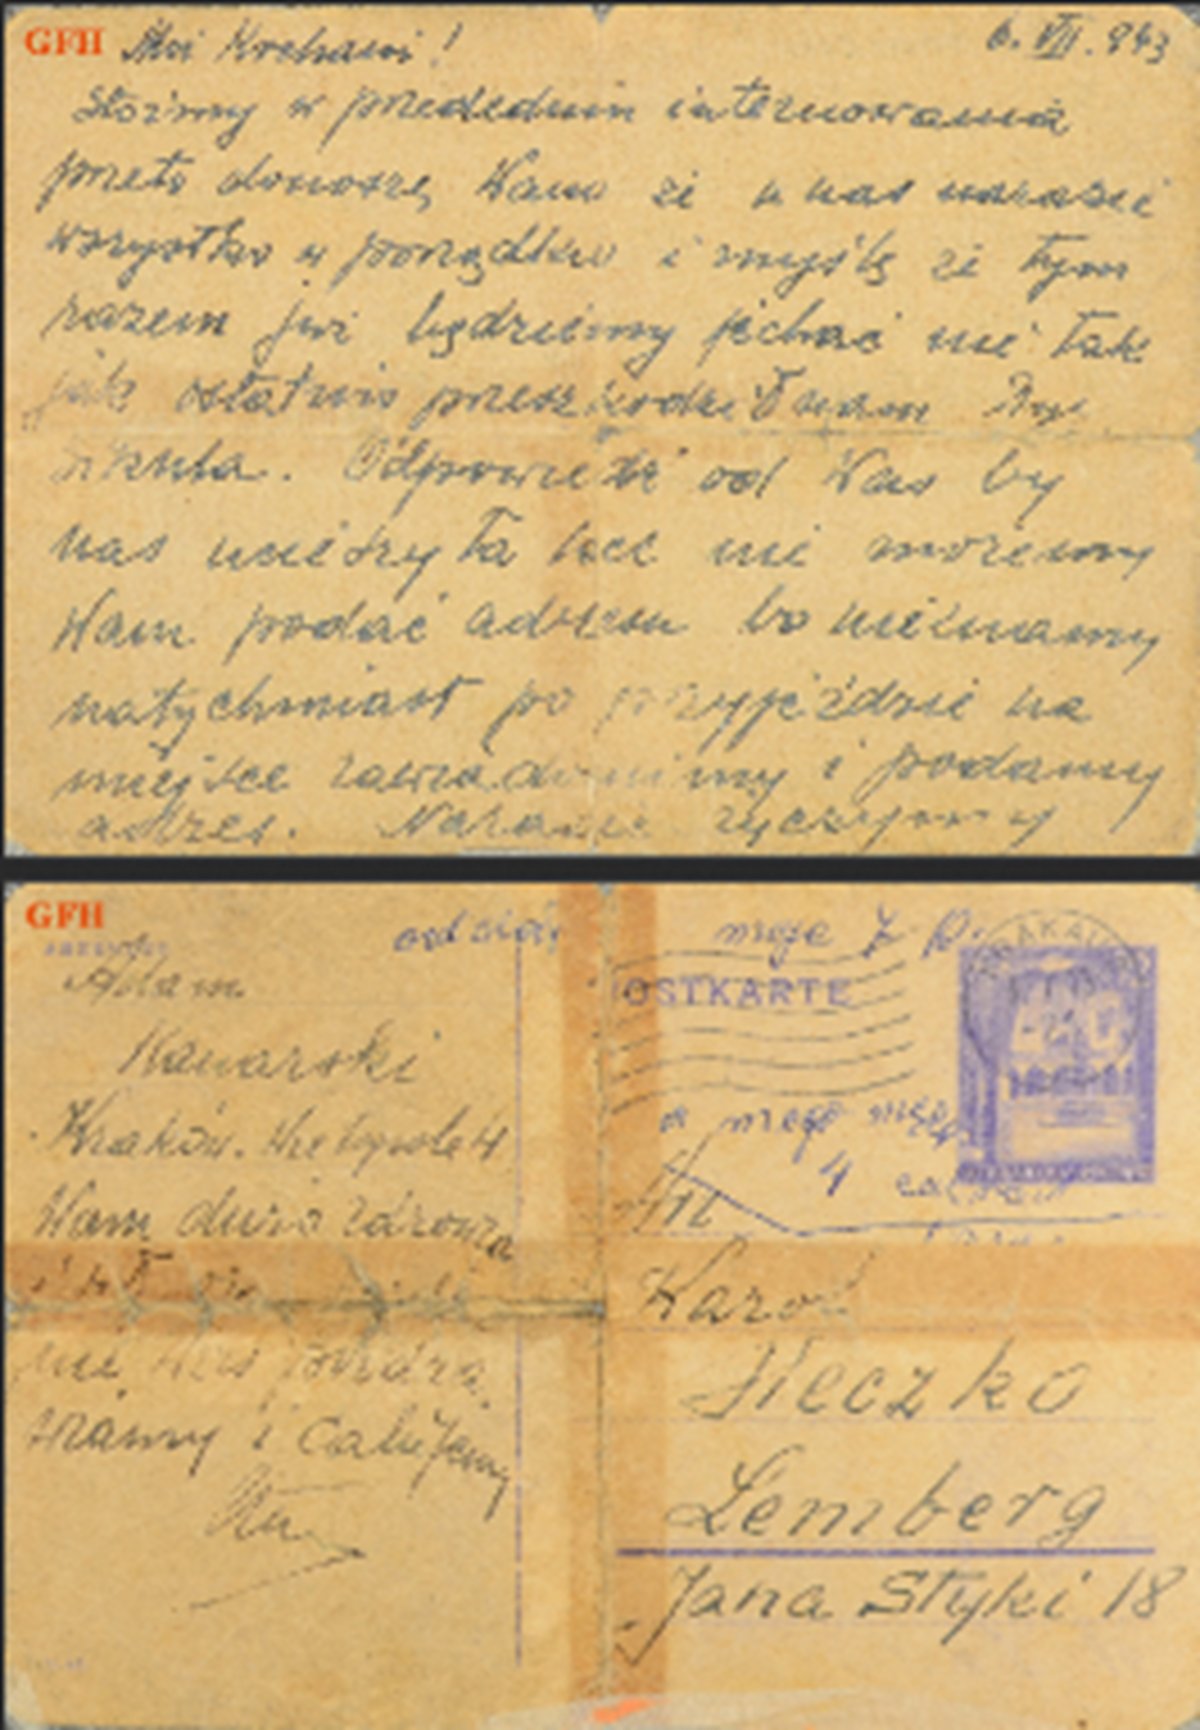 GFH Moi Kochani! 6. VII. 943
Stoimy w przededniu internowania
przeto donoszę Wam że u nas narazie
wszystko w porządku i myślę że tym
razem już będziemy jechać nie tak
jak ostatnio przeszkodził nam
Odpowiedź od Was by
nas ucieszyła lecz nie możemy
Wam podać adresu bo nieznamy
natychmiast po przyjeździe na
miejsce zawiadomimy i podamy
adres. Narazie życzymy
GFH
Adam
Kraków.
Wam dużo zdrowia
nie Was pozdra
wiamy i całujemy
moje
POSTKARTE
KRAKAU
4
Karol
Heczko
Lemberg
Jana Styki 18